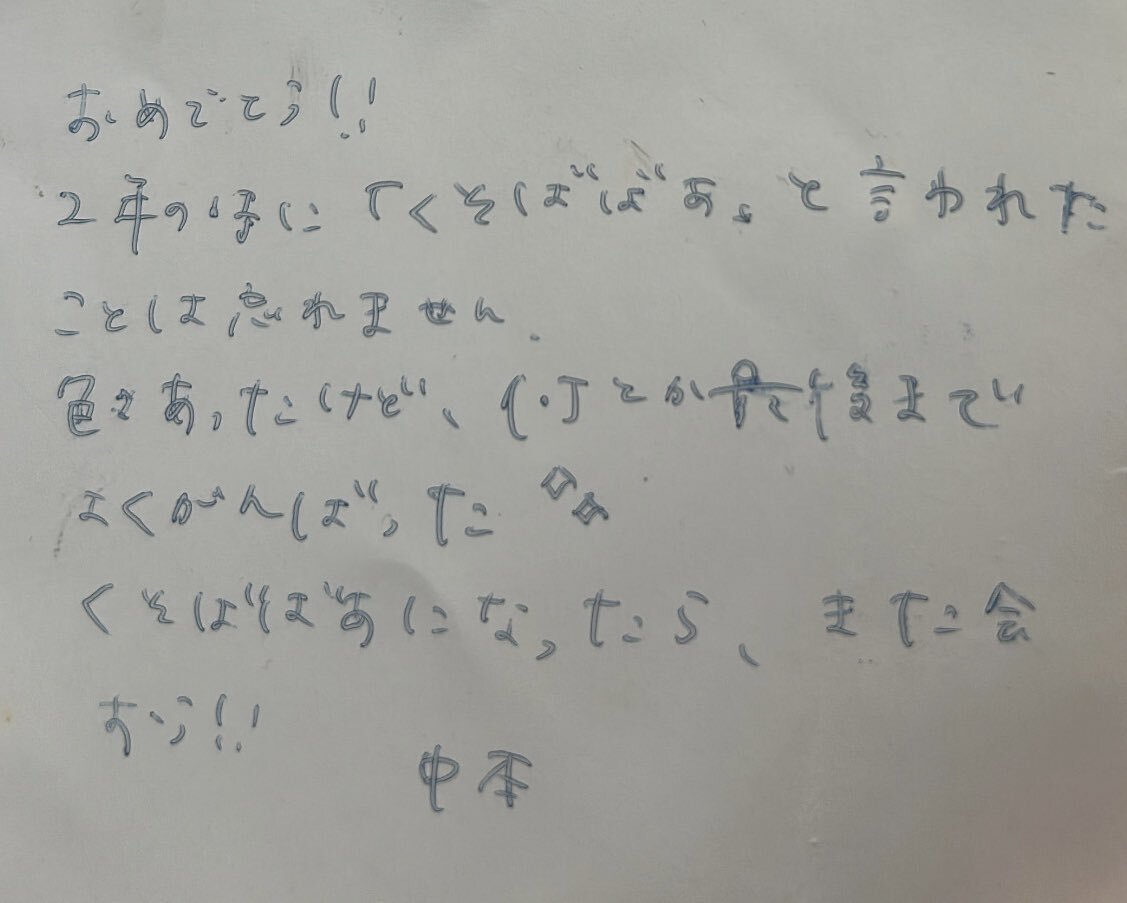 おめでとう!!
2年の時に「くそばばあ」と言われた
ことは忘れません.
色々あったけど、 とか最後まで
よくがんばった
くそばばあになったら、また会
おう!!
中本